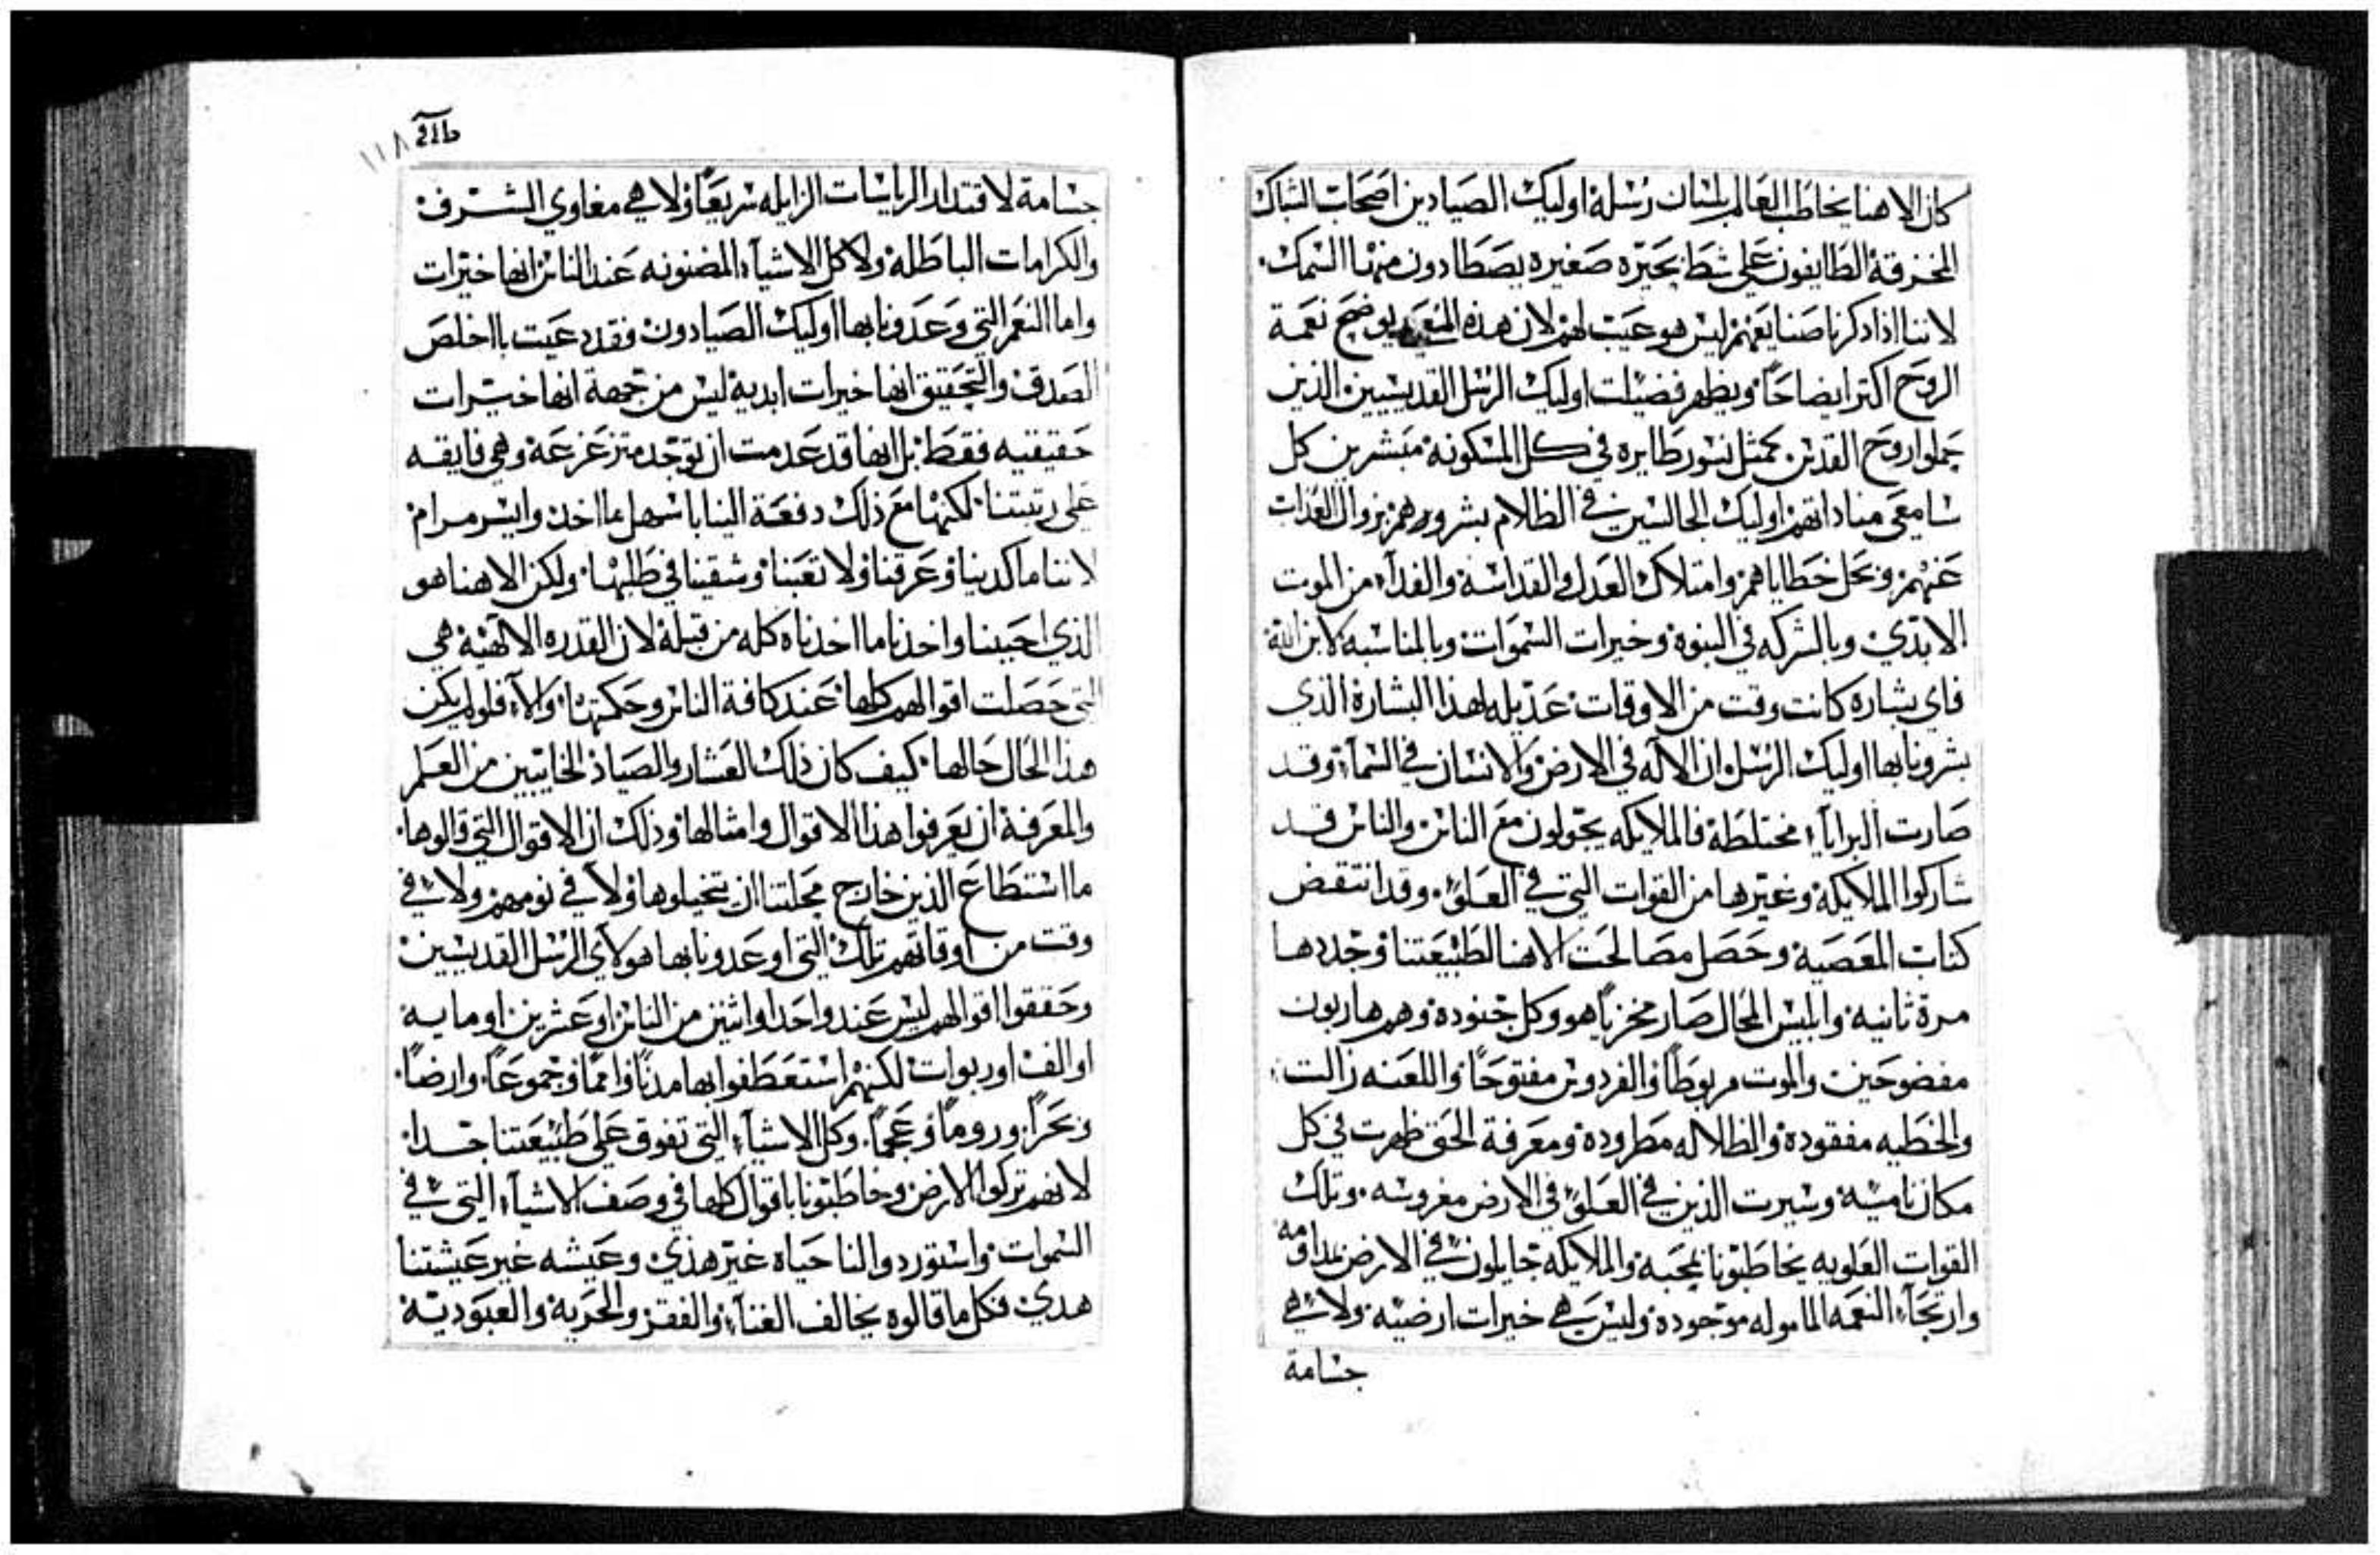 كان الاهنا يخاطب العالم بلسان رسله اوليك الصيادين اصحاب الشباك
المخزقة الطايفون على شط بحيره صغيره يصطادون منها السمك.
لاننا اذا دكرنا صنايعهم ليس هو عيب لهم لان هذه يوضح نعمة
الروح اكتر ايضاحًا ويظهر فضيلت اوليك الرسل القديسيين الذين
حملوا روح القدس كمثل نسور طايره في كل المسكونه مبشرين كل
سامعى مناداتهم اوليك الجالسين في الظلام بشروهم بزوال العذاب
عنهم وبحل خطاياهم وامتلاك العدل والقداسة والفدآء من الموت
الابدي وبالشركه في البنوة وخيرات السموات وبالمناسبه لابن الله
فاي بشاره كانت وقت من الاوقات عديله لهذا البشارة الذي
بشرونا بها اوليك الرسل ان الاله في الارض والانسان في السمآء وقد
صارت البرايآء مختلطة فالملايكه يجولون مع الناس والناس قد
شاركوا الملايكة وغيرها من القوات التي في العلو. وقد انتقض
كتاب المعصية وحصل مصالحت الاهنا لطبيعتنا وجددها
مرة ثانيه وابليس المحال صار مخزيًا هو وكل جنوده وهم هاربون
مفضوحين والموت مربوطًا والفردوس مفتوحًا واللعنه زالت
والخطيه مفقودة والظلاله مطرودة ومعرفة الحق ظهرت في كل
مكان ناميه وسيرت الذين في العلو في الارض مغروسه. وتلك
القوات العلويه يخاطبونا بمحبه والملايكه جايلون في الارض بمداومه
وارتجآء النعمه الماموله موجودة وليس هي خيرات ارضيه ولا هي
جسامة
١١٨
جسامة لاقتدار الرياسات الزايله سريعًا ولا هي مغاوي الشرف
والكرامات الباطلة ولا كل الاشيآء المضنونه عند الناس انها خيرات
واما النعم التي وعدونا بها اوليك الصيادون فقد دعيت بااخلص
الصدق والتحقيق انها خيرات ابدية ليس من جهة انها خيرات
حقيقيه فقط بل انها قد عدمت ان توجد متزعزعة وهي فايقه
على رتبتنا لكنها مع ذلك دفعة الينا باسهل مااخذ وايسر مرام
لاننا ما كدينا وعرقنا ولا تعبنا وشقينا في طلبها ولكن الاهنا هو
الذي احبنا واخدنا ما اخدناه كله من قبله لان القدره الالهية هي
التي حصلت اقوالهم كلها عند كافة الناس وحكمتها والآ فلو لم يكن
هذا الحال حالها كيف كان ذلك العشار والصياد الخايبين من العلم
والمعرفة ان يعرفوا هذا الاقوال وامثالها وذلك ان الاقوال التي قالوها.
ما استطاع الذين خارج محلتنا ان يتخيلوها ولا في نومهم ولا في
وقت من اوقاتهم تلك التي اوعدونا بها هولاي الرسل القديسيين
وحققوا اقوالهم ليس عند واحد او اثنين من الناس او عشرين او مايه
او الف او ربوات لكنهم استعطفوا بها مدنًا واممًا وجموعًا. وارضًا.
وبحرًا. ورومًا وعجمًا. وكل الاشيآء التي تفوق على طبيعتنا جدا.
لانهم تركوا الارض وخاطبونا باقوال كلها في وصف الاشيآء التي في
السموات واستوردوا لنا حياه غير هذي وعيشه غير عيشتنا
هدي فكل ما قالوه يخالف الغنآء والفقر والحرية والعبوديه